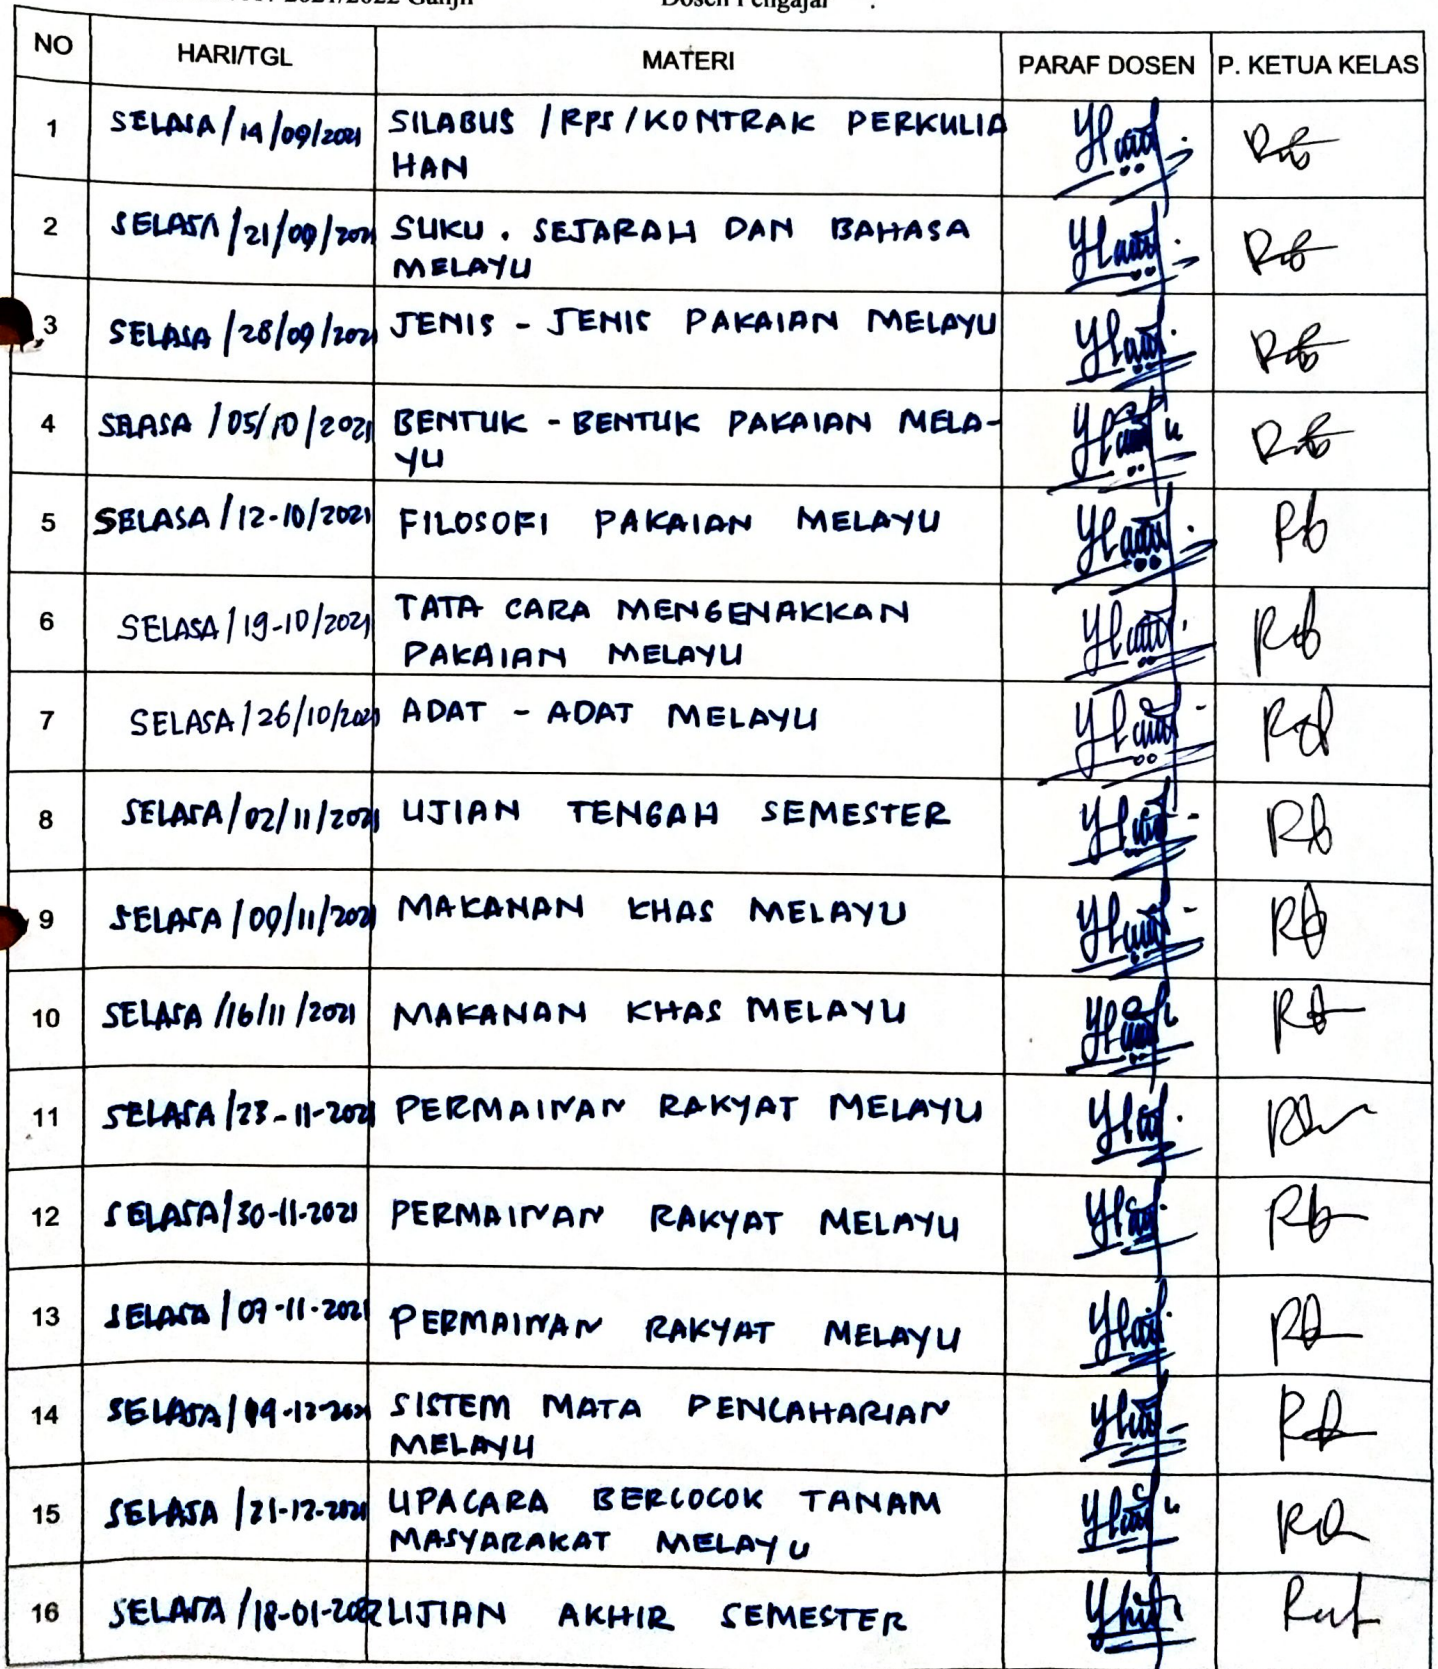 2021/2022 Ganjil Dosen Pengajar :
NO HARI/TGL MATERI PARAF DOSEN P. KETUA KELAS
1 SELASA/14/09/2021 SILABUS /RPS/KONTRAK PERKULIA
HAN
2 SELASA/21/09/2021 SUKU. SEJARAH DAN BAHASA
MELAYU
3 SELASA/28/09/2021 JENIS - JENIS PAKAIAN MELAYU
4 SELASA/05/10/2021 BENTUK - BENTUK PAKAIAN MELA-
YU
5 SELASA/12-10/2021 FILOSOFI PAKAIAN MELAYU
6 SELASA/19-10/2021 TATA CARA MENGENAKKAN
PAKAIAN MELAYU
7 SELASA/26/10/2021 ADAT - ADAT MELAYU
8 SELASA/02/11/2021 UJIAN TENGAH SEMESTER
9 SELASA/09/11/2021 MAKANAN KHAS MELAYU
10 SELASA/16/11/2021 MAKANAN KHAS MELAYU
11 SELASA/23-11-2021 PERMAINAN RAKYAT MELAYU
12 SELASA/30-11-2021 PERMAINAN RAKYAT MELAYU
13 SELASA/07-11-2021 PERMAINAN RAKYAT MELAYU
14 SELASA/14-12-2021 SISTEM MATA PENCAHARIAN
MELAYU
15 SELASA/21-12-2021 UPACARA BERCOCOK TANAM
MASYARAKAT MELAYU
16 SELASA/18-01-2022 UJIAN AKHIR SEMESTER